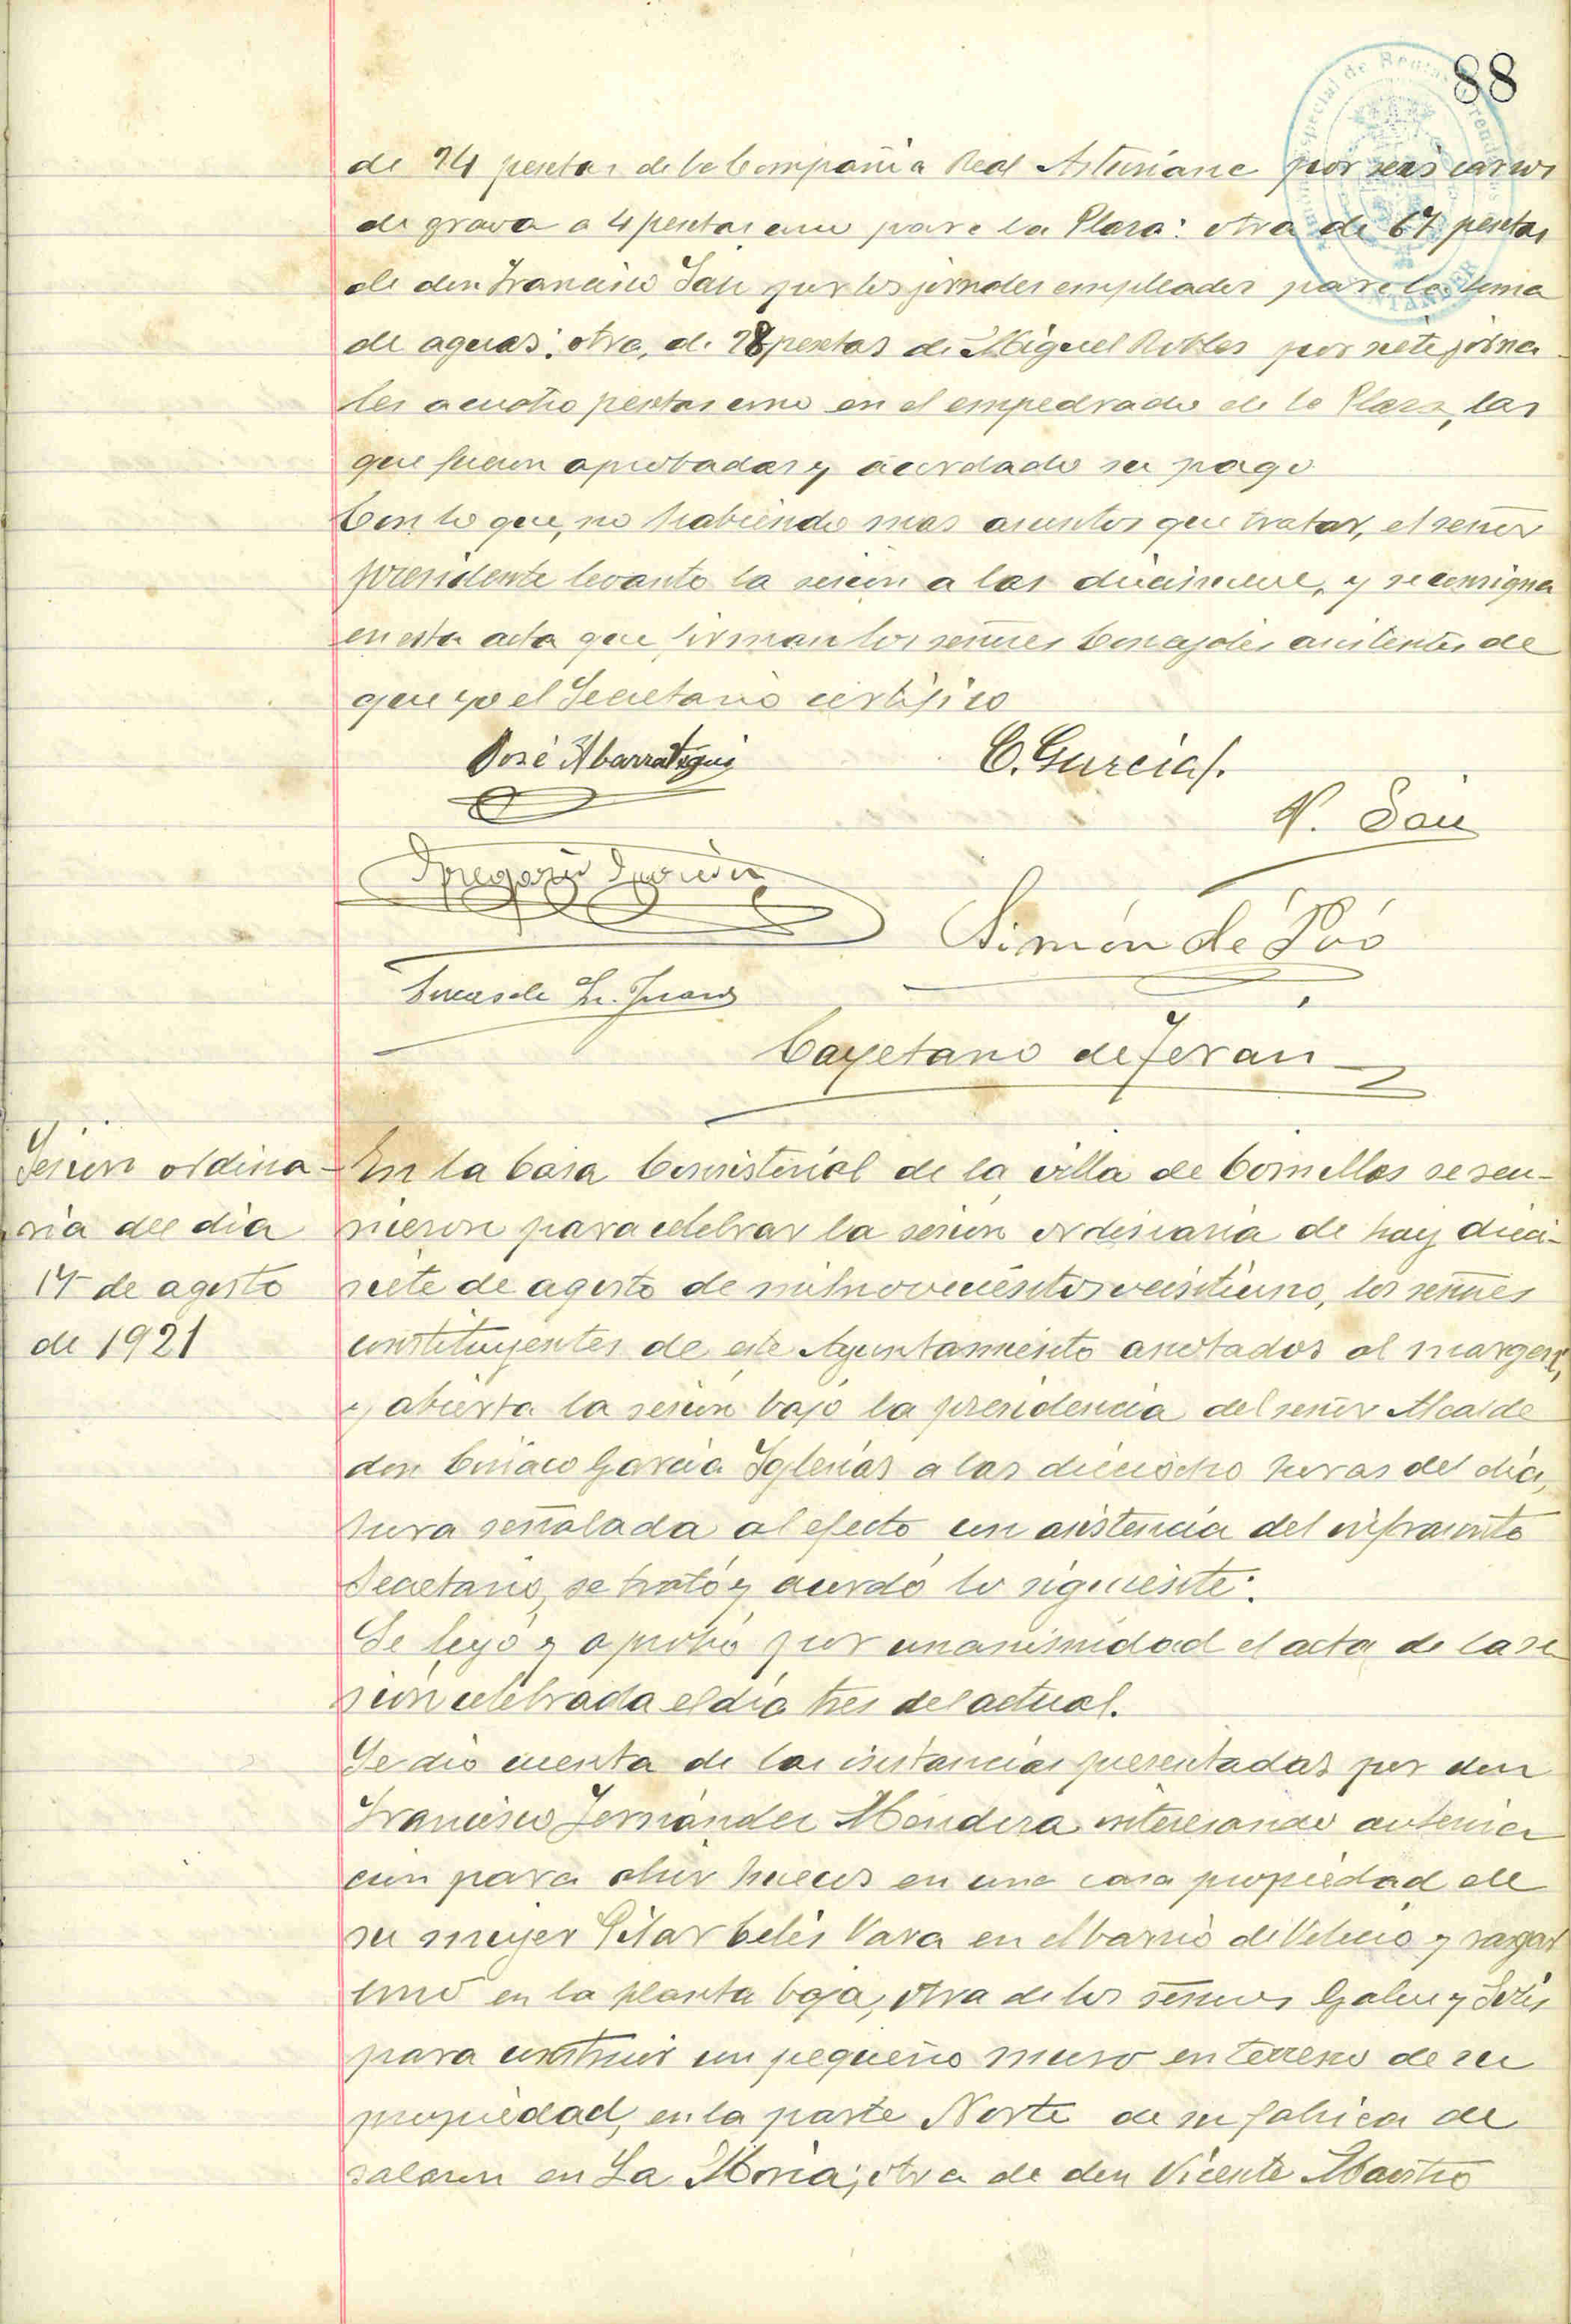 88
de 24 pesetas de la Compañia Real Asturiana por seis carros
de grava a 4 pesetas uno para la Plaza: otra de 67 pesetas
de don Francisco Sañ por los jornales empleados para la toma
de aguas; otra, de 28 pesetas de Miguel Robles por siete jorna
les a cuatro pesetas uno en el empedrado de la Plaza, las
que fueron aprobadas y acordado su pago
Con lo que, no habiendo mas asuntos que tratar, el señor
presidente levanto la sesion a las diecinueve, y se consigna
en esta acta que firman los señores Concejales asistentes de
que yo el Secretario certifico
José Abarrategui C. Garcia I.
Gregorio
Simón de Póo
Cayetano de Teran
Sesion ordina-
ria del dia
17 de agosto
de 1921
En la Casa Consistorial de la villa de Comillas se reu-
nieron para celebrar la sesion ordinaria de hoy dieci-
siete de agosto de mil novecientos veintiuno, los señores
constituyentes de este Ayuntamiento anotados al margen,
y abierta la sesion bajo la presidencia del señor Alcalde
don Ciriaco Garcia Iglesias a las dieciocho horas del dia,
hora señalada al efecto con asistencia del infrascrito
Secretario, se trató y acordó lo siguiente:
Se leyó y aprobó por unanimidad el acta de la se
sion celebrada el dia tres del actual.
Se dio cuenta de las instancias presentadas por don
Francisco Fernández Mendera interesando autoriza
cion para abrir huecos en una casa propiedad de
su mujer Pilar Celis Vara en el barrio de Velecio y rasgar
uno en la planta baja, otra de los señores y Solis
para construir un pequeño muro en terreno de su
propiedad, en la parte Norte de su fabrica de
salazon en La Moria; otra de don Vicente Maestro